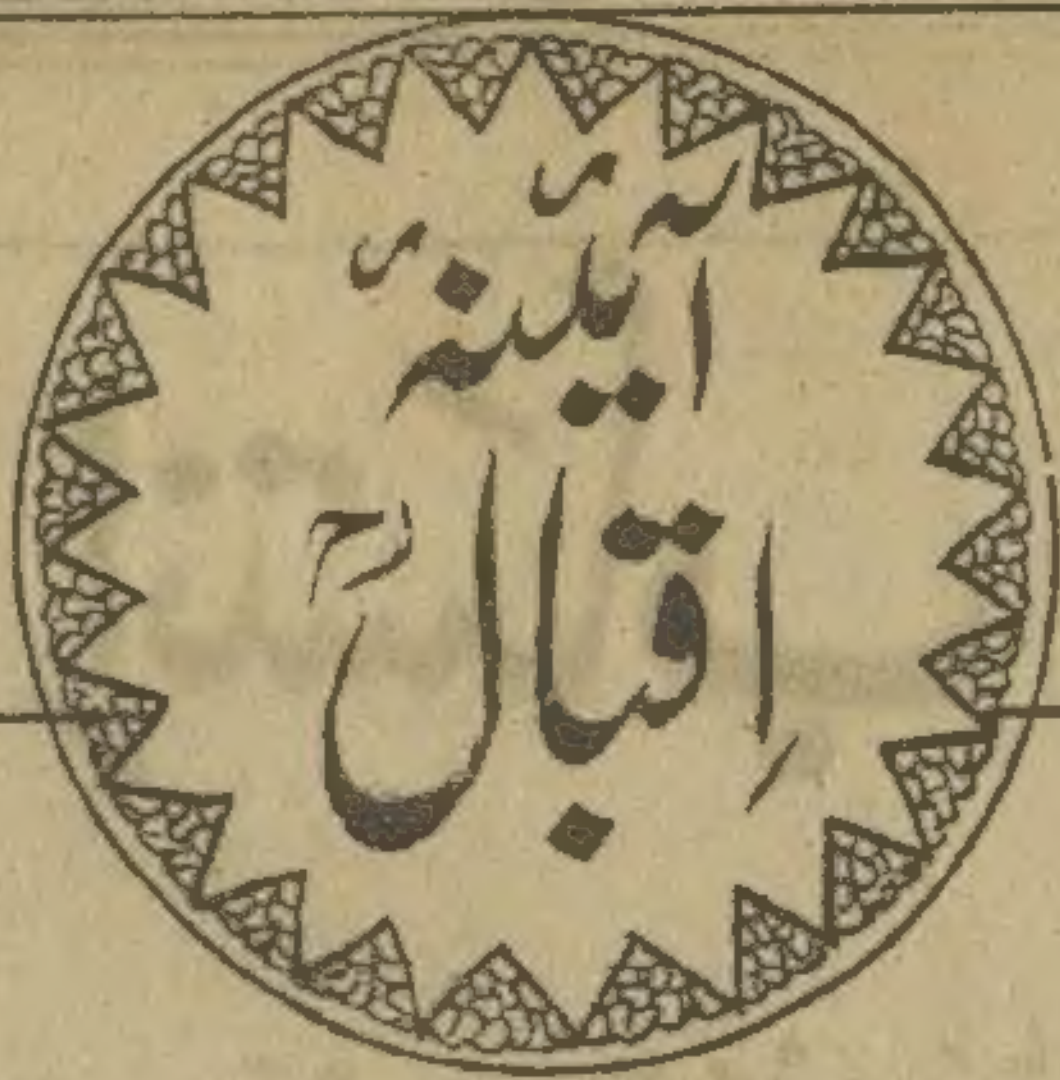 آئینۂ
اِقبالؒ